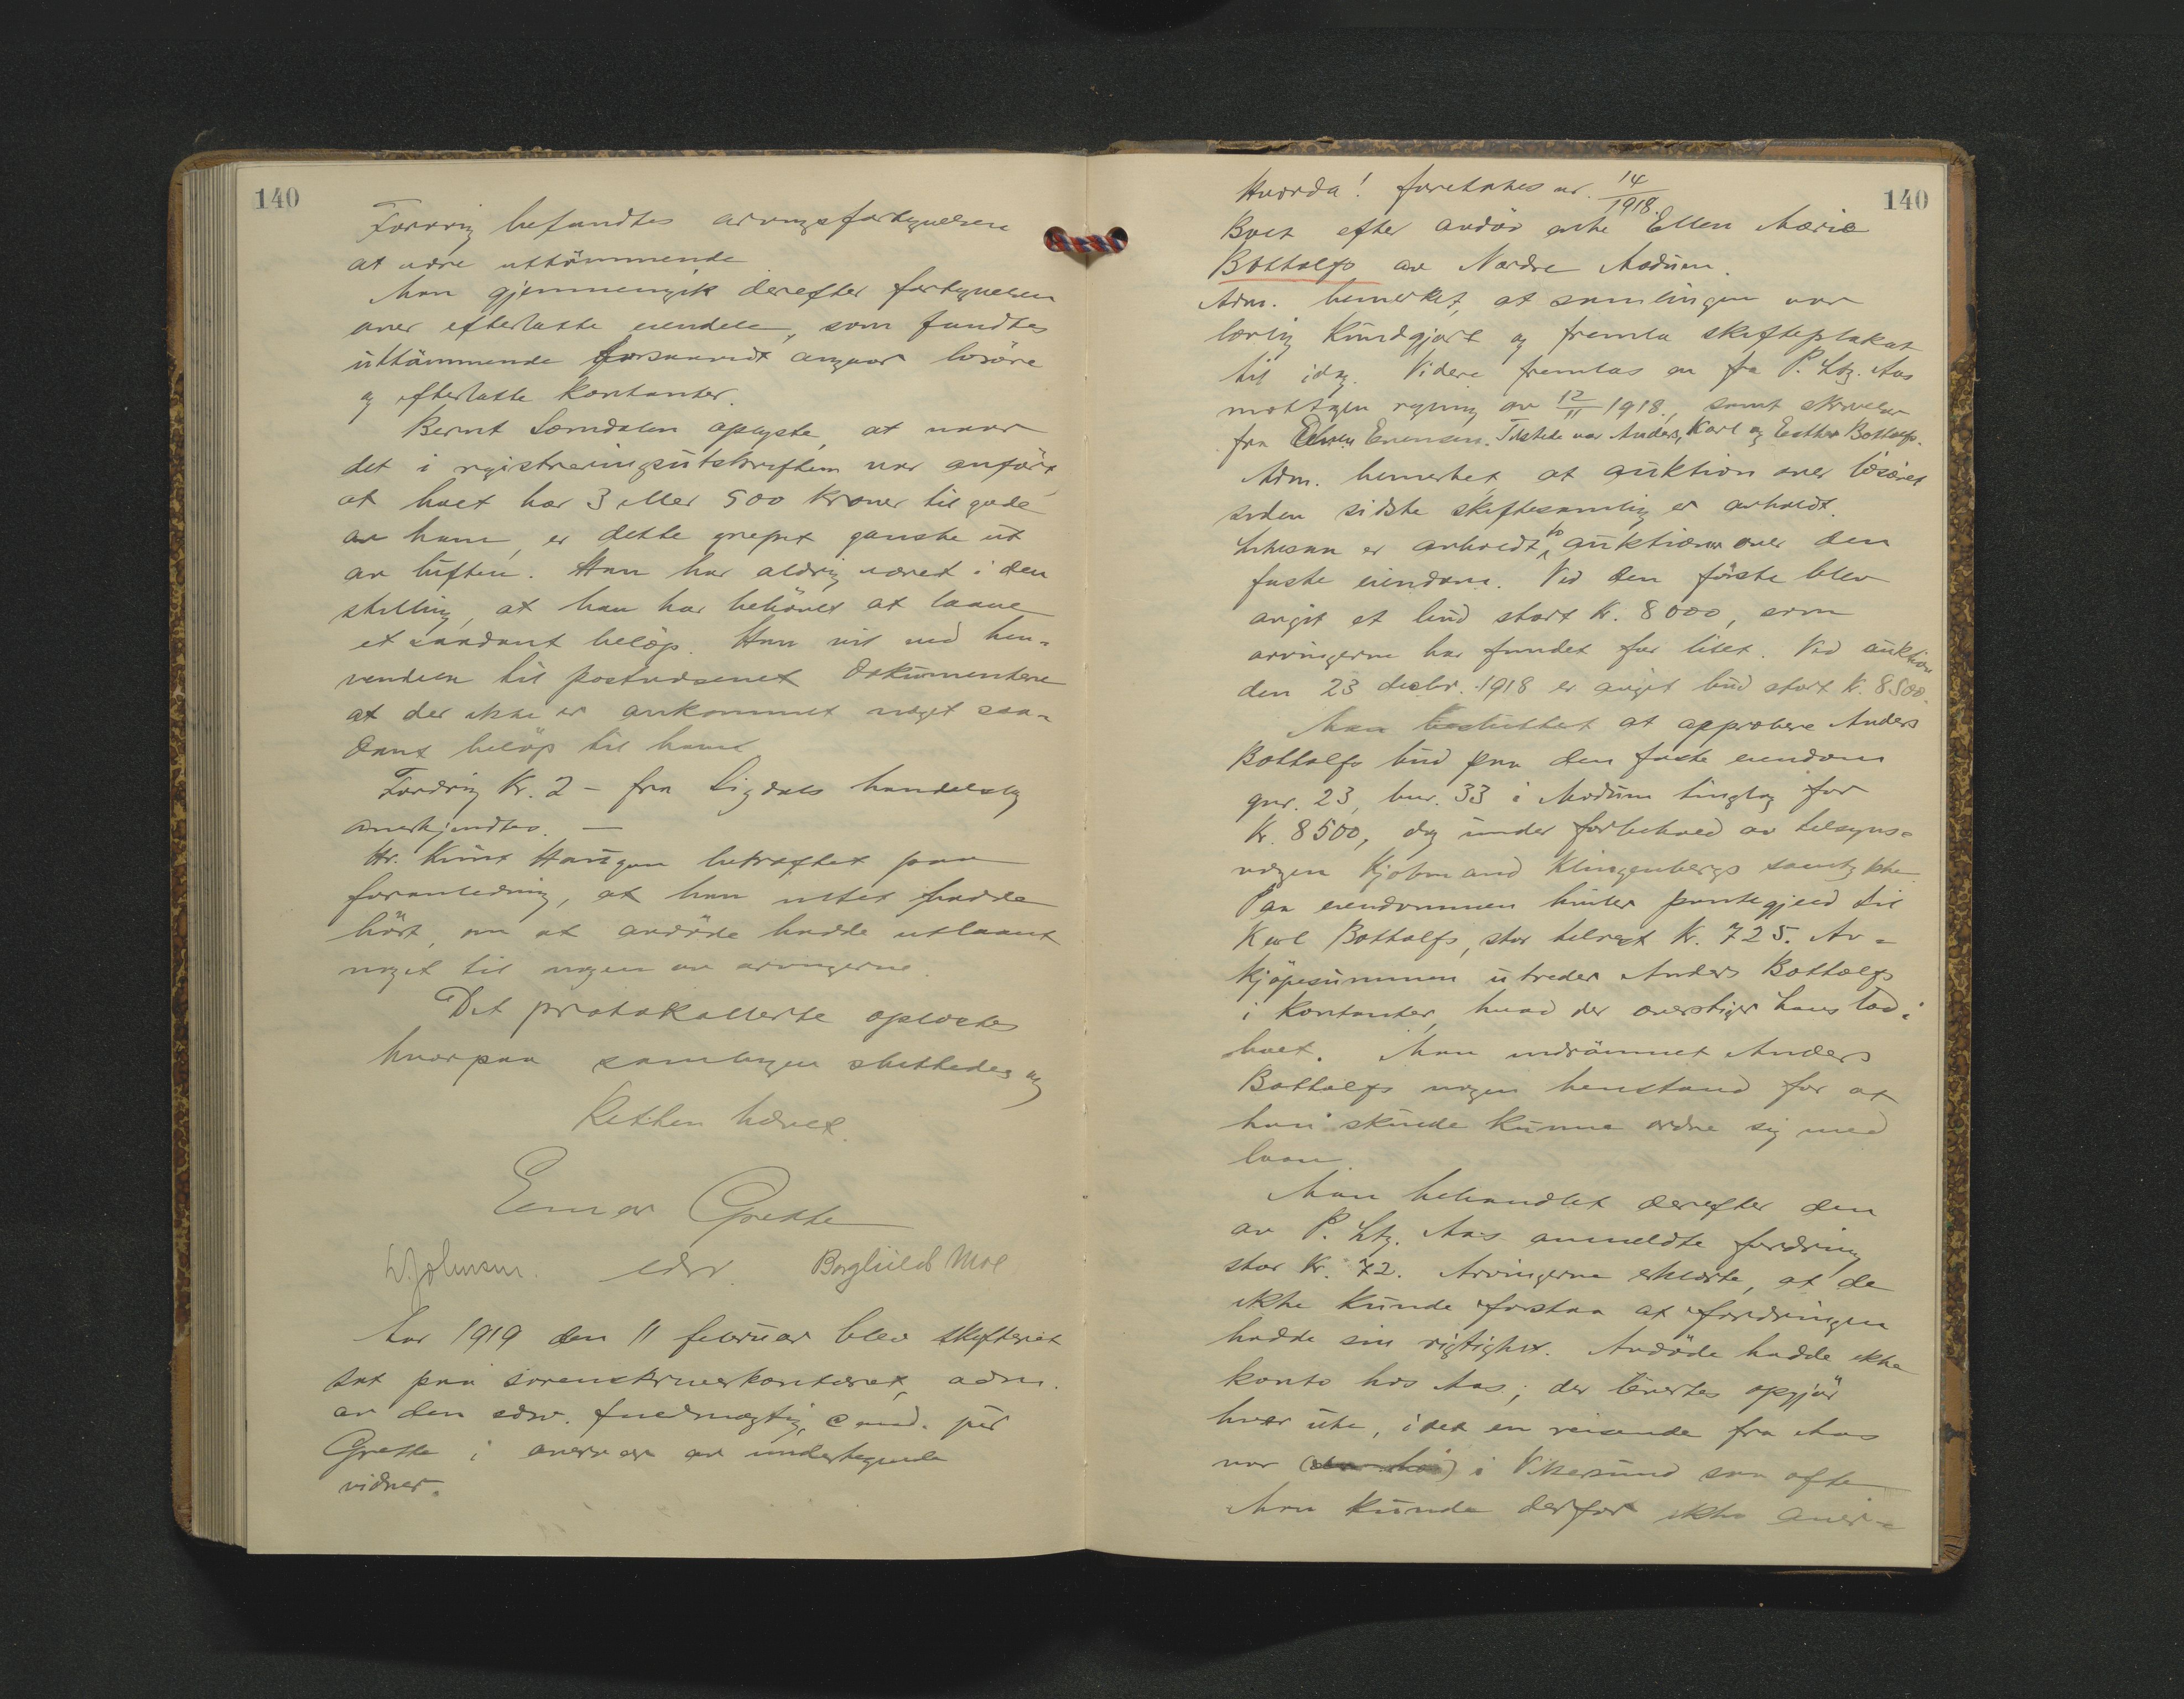 140
Forøvrig befandtes arvingsfortegnelsen
at være uttömmende
Man gjennemgik derefter fortegnelsen
over efterlatte eiendele, som fandtes
uttömmende forsaavidt angaar lösöre
og efterlatte kontanter.
Bernt Sørndalen oplyste, at naar
det i registreringsutskriften var anfört
at boet har 3 eller 500 kroner tilgode
av ham, er dette grepet ganske ut
av luften. Han har aldrig været i den
stilling, at han har behövet at laane
et saadant belöp. Han vil ved hen-
vendelse til postvæsenet dokumentere
at der ikke er ankommet noget saa-
dant belöp til ham
Fordring Kr. 2 - fra Sigdals handelslag
anerkjendtes. —
Hr. Knut Haugen bekræftet paa
foranledning, at han intet hadde
hört, om at avdöde hadde utlaant
noget til nogen av arvingerne.
Det protokollerte oplæstes
hvorpaa samlingen sluttedes og
Retten hævet.
Einar Grette
W. Johnsen. edsv. Borghild Moe
Aar 1919 den 11 februar blev skifteret
sat paa sorenskriverkontoret, adm.
av den edsv. fuldmægtig, cand. jur
Grette i overvær av undertegnede
vidner.
140
Hvorda! foretokes nr. 14/1918.
Boet efter avdöd enke Ellen Marie
Bottolfs av Nordre Modum.
Adm. bemerket, at samlingen var
lovlig kundgjort og fremla skifteplakat
til idag. Videre fremlas en fra P. Ltz. Aas
mottagen regning av 12/11 1918., samt skrivelse
fra Evensen. Tilstede var Anders, Karl og Esther Bottolfs.
Adm. bemerket at auktion over lösöret
siden sidste skiftesamling er avholdt.
Likesaa er avholdt to auktioner over den
faste eiendom. Ved den förste blev
avgit et bud stort kr. 8000, som
arvingerne har fundet for litet. Ved auktion
den 23 decbr. 1918 er avgit bud stort kr. 8500.
Man besluttet at approbere Anders
Bottolfs bud paa den faste eiendom
gnr. 23, bnr. 33 i Modum tinglag for
Kr. 8500, dog under forbehold av tilsyns-
vergen Kjøbmand Klingenbergs samtykke.
Paa eiendommen hviler pantegjeld til
Karl Bottolfs, stor tilrest Kr. 725. Av
kjöpesummen utreder Anders Bottolfs
i kontanter, hvad der overstiger hans lod i
boet. Man indrömmet Anders
Bottolfs nogen henstand for at
han skulde kunne ordne sig med
laan.
Man behandlet derefter den
av P. Ltz. Aas anmeldte fordring
stor Kr. 72. Arvingerne erklærte, at de
ikke kunde forstaa at fordringen
hadde sin rigtighet. Avdöde hadde ikke
konto hos Aas; der levertes opgjör
hver uke, idet en reisende fra Aas
var i Vikersund saa ofte
Man kunde derfor ikke aner-